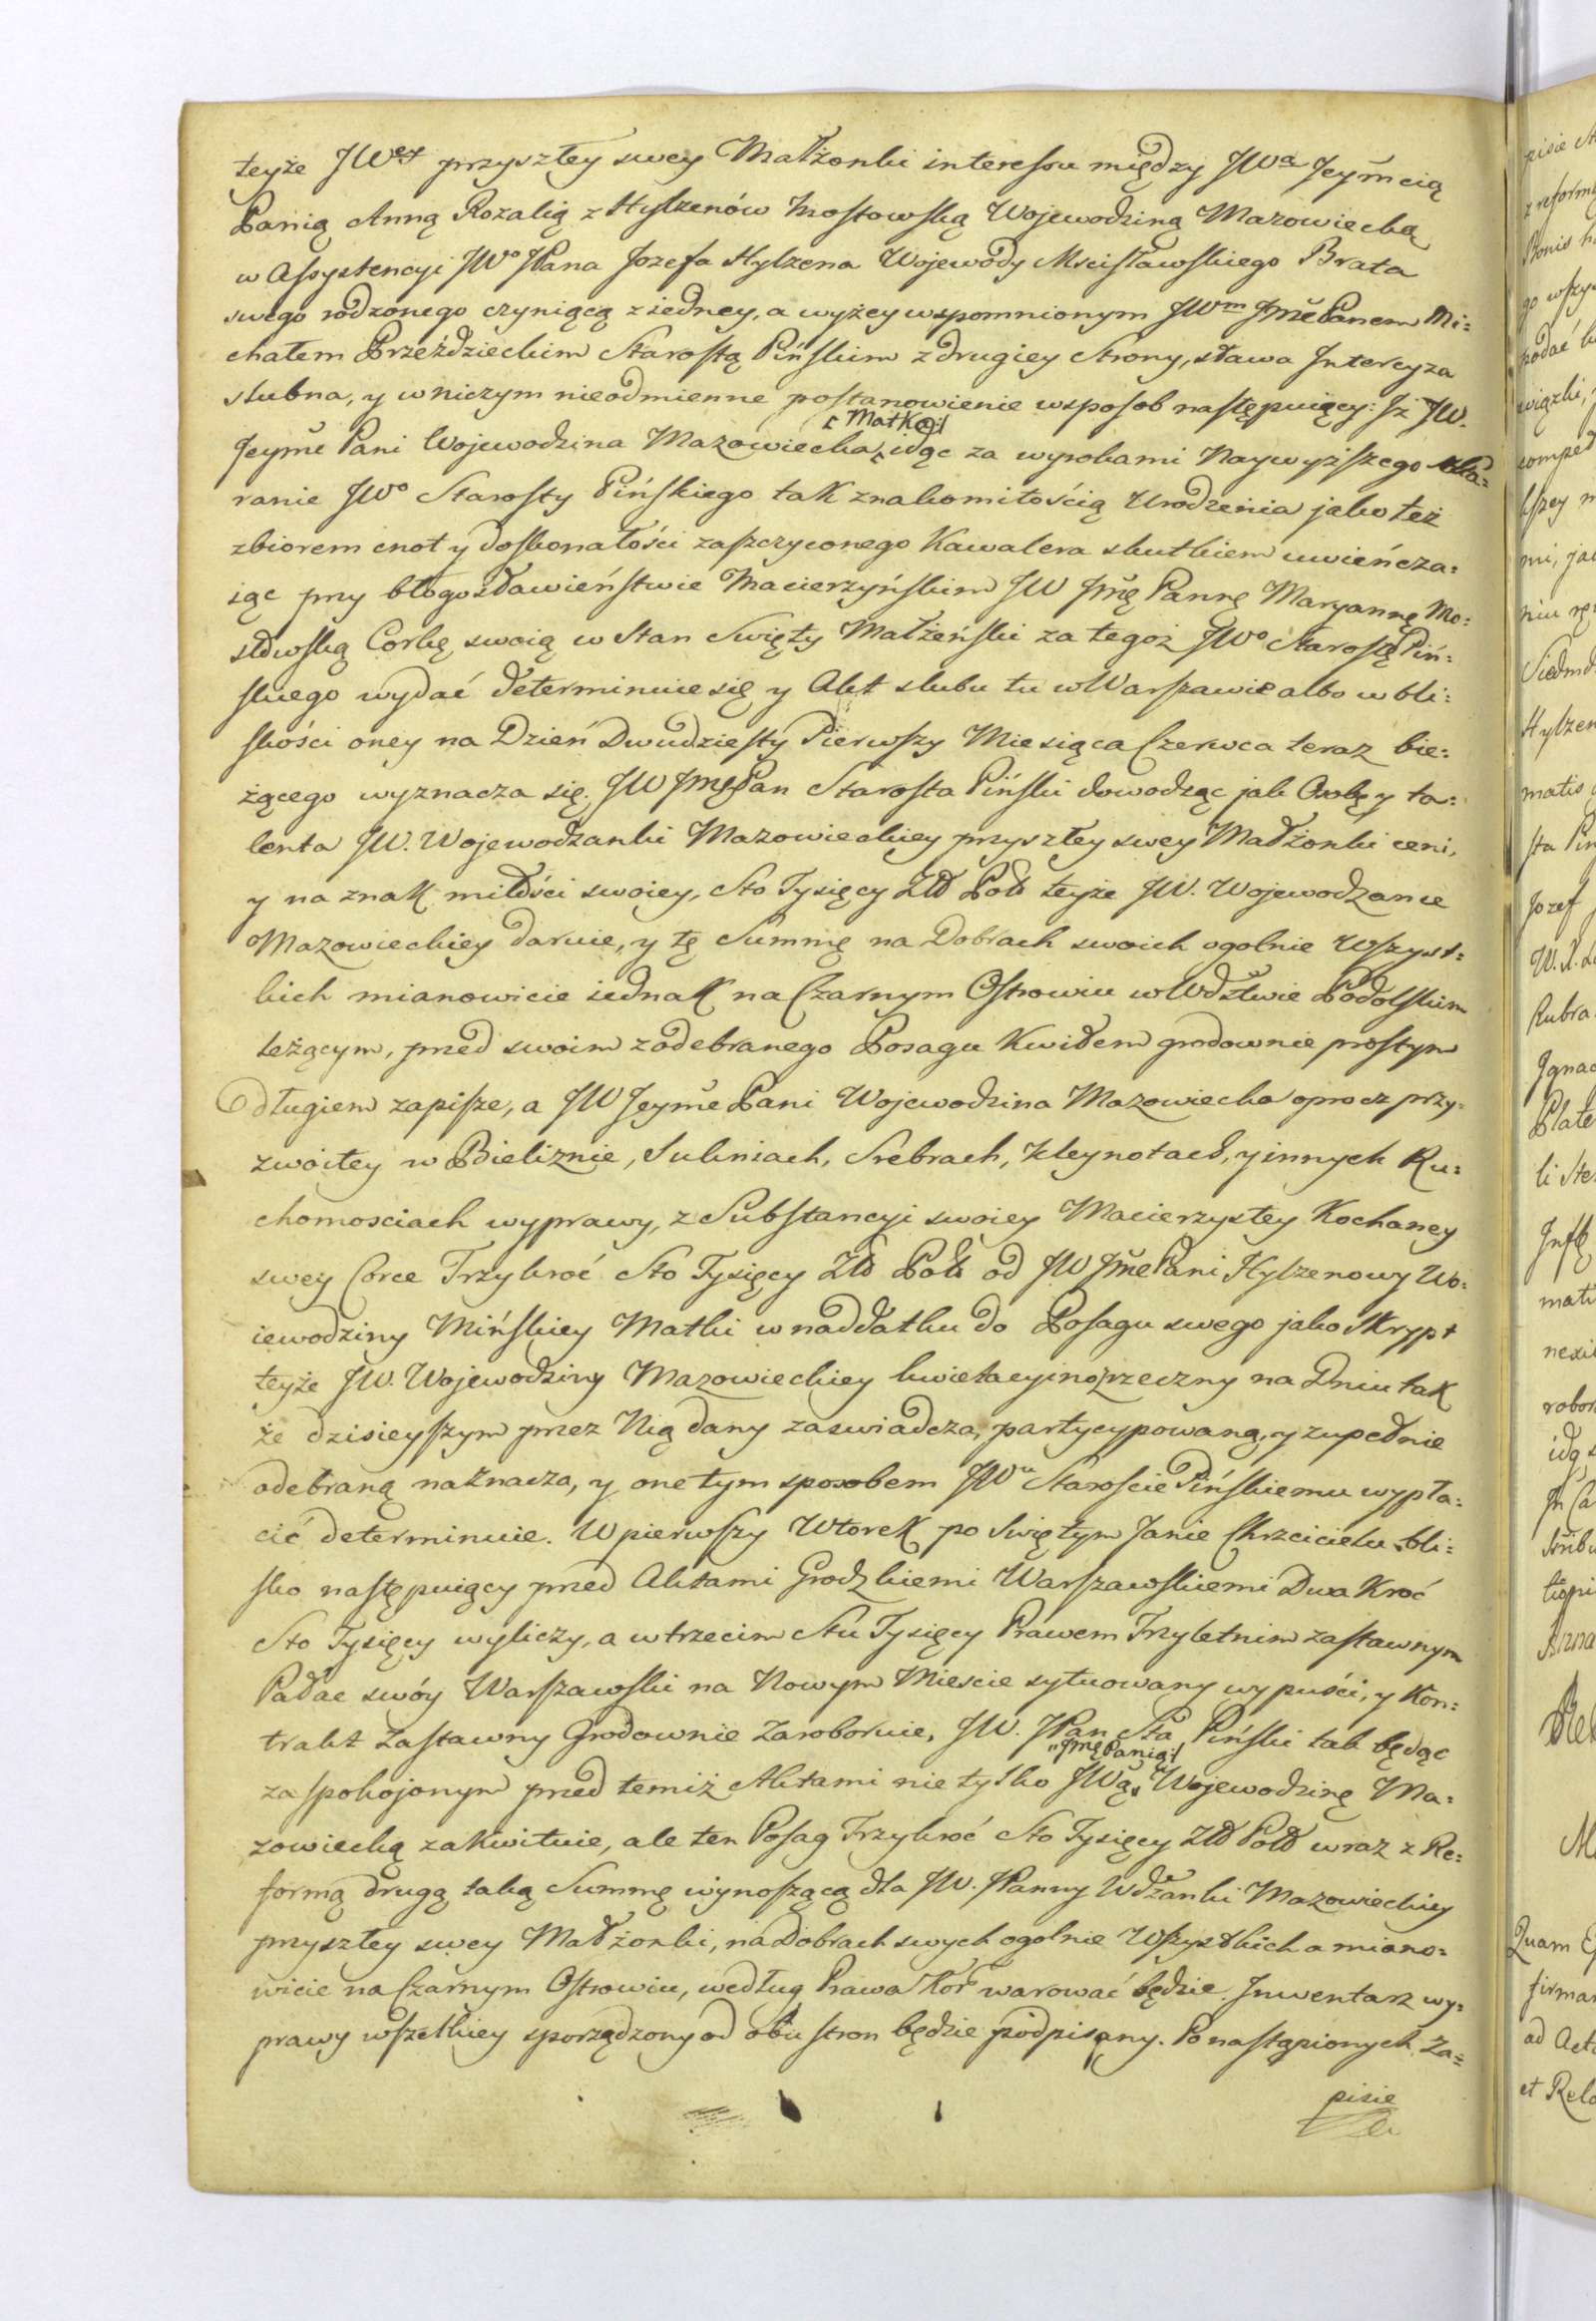 teyże JWey przyszłey swey Małżonki interessu między JWą Jeymcią
Panią Anną Rozalią z Hylzenów Mostowską Wojewodziną Mazowiecką
w Assystencyi JWo JPana Jozefa Hylzena Wojewody Mscisławskiego Brata
swego rodzonego czyniącą z iedney, a wyżey wspomnionym JWm Jmć Panem Mi:
chałem Przeździeckim Starostą Pińskim z drugiey Strony, stawa Intercyza
slubna, y w niczym nieodmienne postanowienie w sposob następuiący: Iż JW.
Jeymć Pani Wojewodzina Mazowiecka [Matka] idąc za wyrokami Naywyższego sta:
ranie JWo Starosty Pińskiego tak znakomitością Urodzenia jako też
zbiorem cnot y doskonałości zaszczyconego Kawalera skutkiem uwieńcza:
iąc przy błogosławieństwie Macierzyńskim JW Jmć Pannę Maryannę Mo:
stowską Corkę swoią w Stan Swięty Małżeński za tegoż JWo Starostę Piń:
skiego wydać determinuie się y Akt slubu tu w Warszawie albo w bli:
skości oney na Dzień Dwudziesty Pierwszy Miesiąca Czerwca teraz bie:
żącego wyznacza się. JW Jmć Pan Starosta Piński dowodząc jak Osobę y ta:
lenta JW. Wojewodzanki Mazowieckiey przyszłey swey Małżonki ceni,
y na znak miłości swoiey, Sto Tysięcy Zł Pol teyże JW. Wojewodzance
Mazowieckiey daruie, y tę Summę na Dobrach swoich ogolnie Wszyst:
kich mianowicie iednak na Czarnym Ostrowiu w Wdztwie Podolskim
leżącym, przed swoim z odebranego Posagu Kwitem grodownie prostym
długiem zapisze, a JW Jeymć Pani Wojewodzina Mazowiecka oprocz przy:
zwoitey w Bieliznie, Sukniach, Srebrach, Kleynotach, y innych Ru:
chomosciach wyprawy, z Substancyi swoiey Macierzystey Kochaney
swey Corce Trzykroć Sto Tysięcy Zł Pol od JW Jmć Pani Hylzenowy Wo:
iewodziny Mińskiey Matki w naddatku do Posagu swego jako Skrypt
teyże JW. Wojewodziny Mazowieckiey kwietacyino zrzeczny na Dniu tak
że dzisieyszym przez Nią dany zaswiadcza, partycypowaną, y zupełnie
odebraną naznacza, y one tym sposobem JWu Staroscie Pińskiemu wypła:
cić determinuie. W pierwszy Wtorek po Swiętym Janie Chrzcicielu bli:
sko następuiący przed Aktami Grodzkiemi Warszawskiemi Dwa Kroć
Sto Tysięcy wyliczy, a w trzecim Stu Tysięcy Prawem Trzyletnim zastawnym
Pałac swóy Warszawski na Nowym Miescie sytuowany wypuści, y Kon:
trakt Zastawny Grodownie Zaroboruie, JW. JPan Sta Piński tak będąc
zaspokojonym przed temiż Aktami nie tylko JWą "Jmć Panią" Wojewodzinę Ma:
zowiecką zakwituie, ale ten Posag Trzykroć Sto Tysięcy Zł Pol wraz z Re:
formą drugą taką Summę wynoszącą dla JW. JPanny Wdzanki Mazowieckiey
przyszłey swey Małżonki, na Dobrach swych ogolnie Wszystkich a miano:
wicie na Czarnym Ostrowiu, według Prawa Kor warować będzie. Inwentarz wy:
prawy wszelkiey sporządzony od obu stron będzie podpisany. Po nastąpionych Za:
pisie